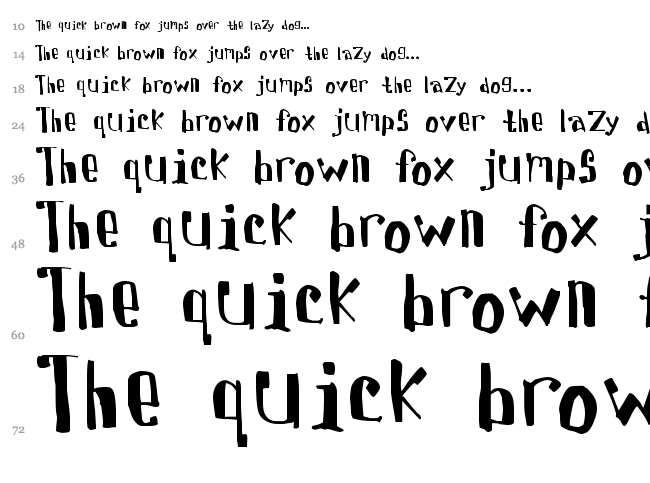 10 The quick brown fox jumps over the lazy dog...
14 The quick brown fox jumps over the lazy dog...
18 The quick brown fox jumps over the lazy dog...
24 The quick brown fox jumps over the lazy d
36 The quick brown fox jumps ov
48 The quick brown fox j
60 The quick brown f
72 The quick brow